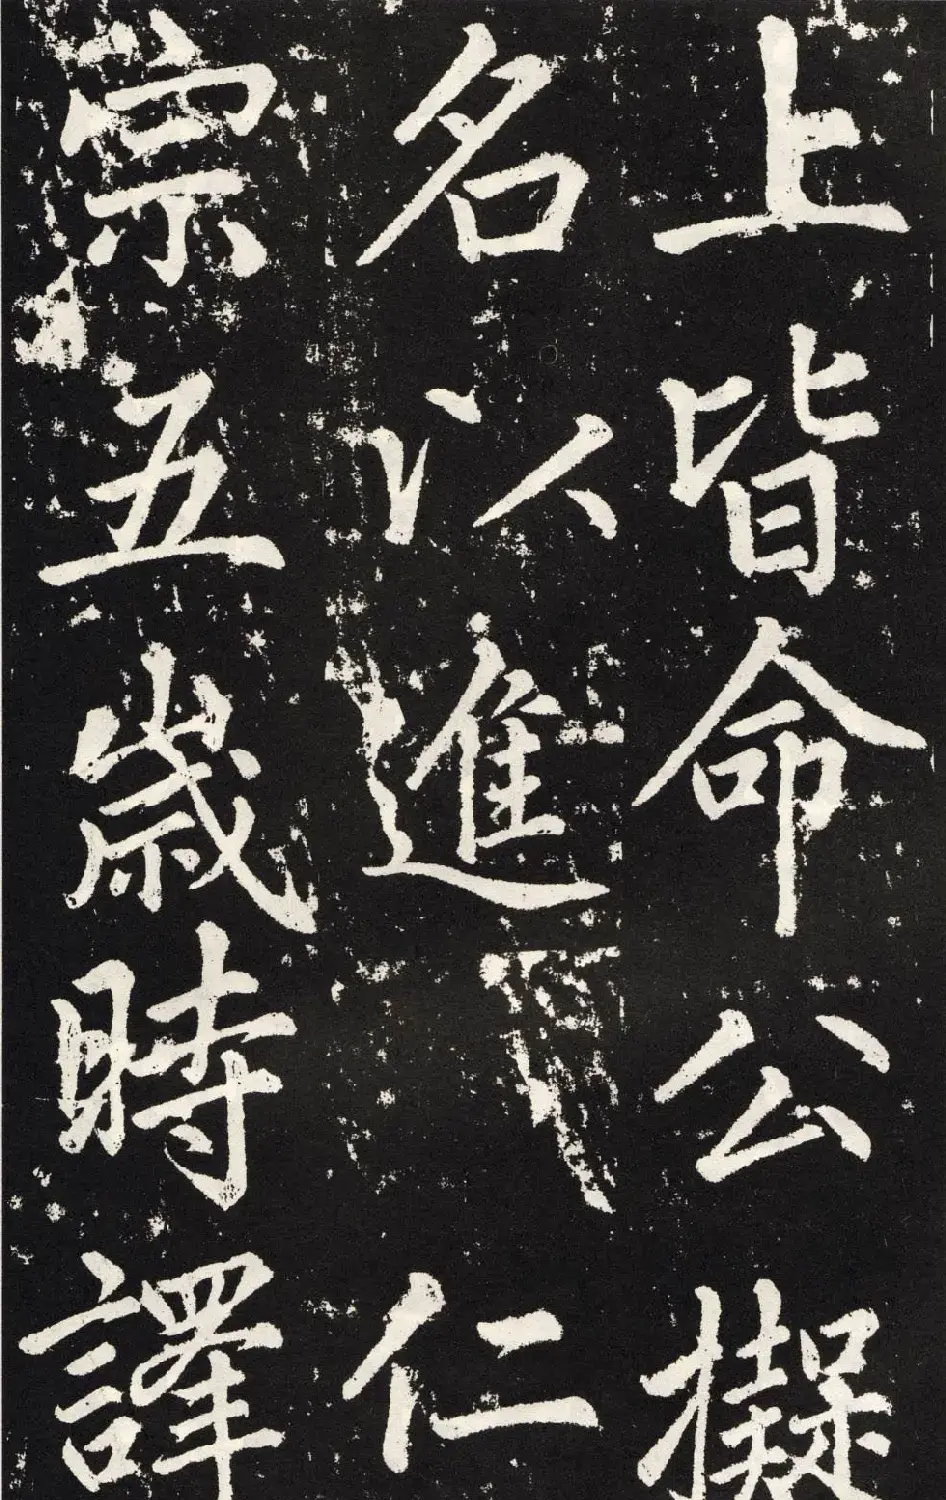 上皆命公擬
名以進仁
宗五歲時譯